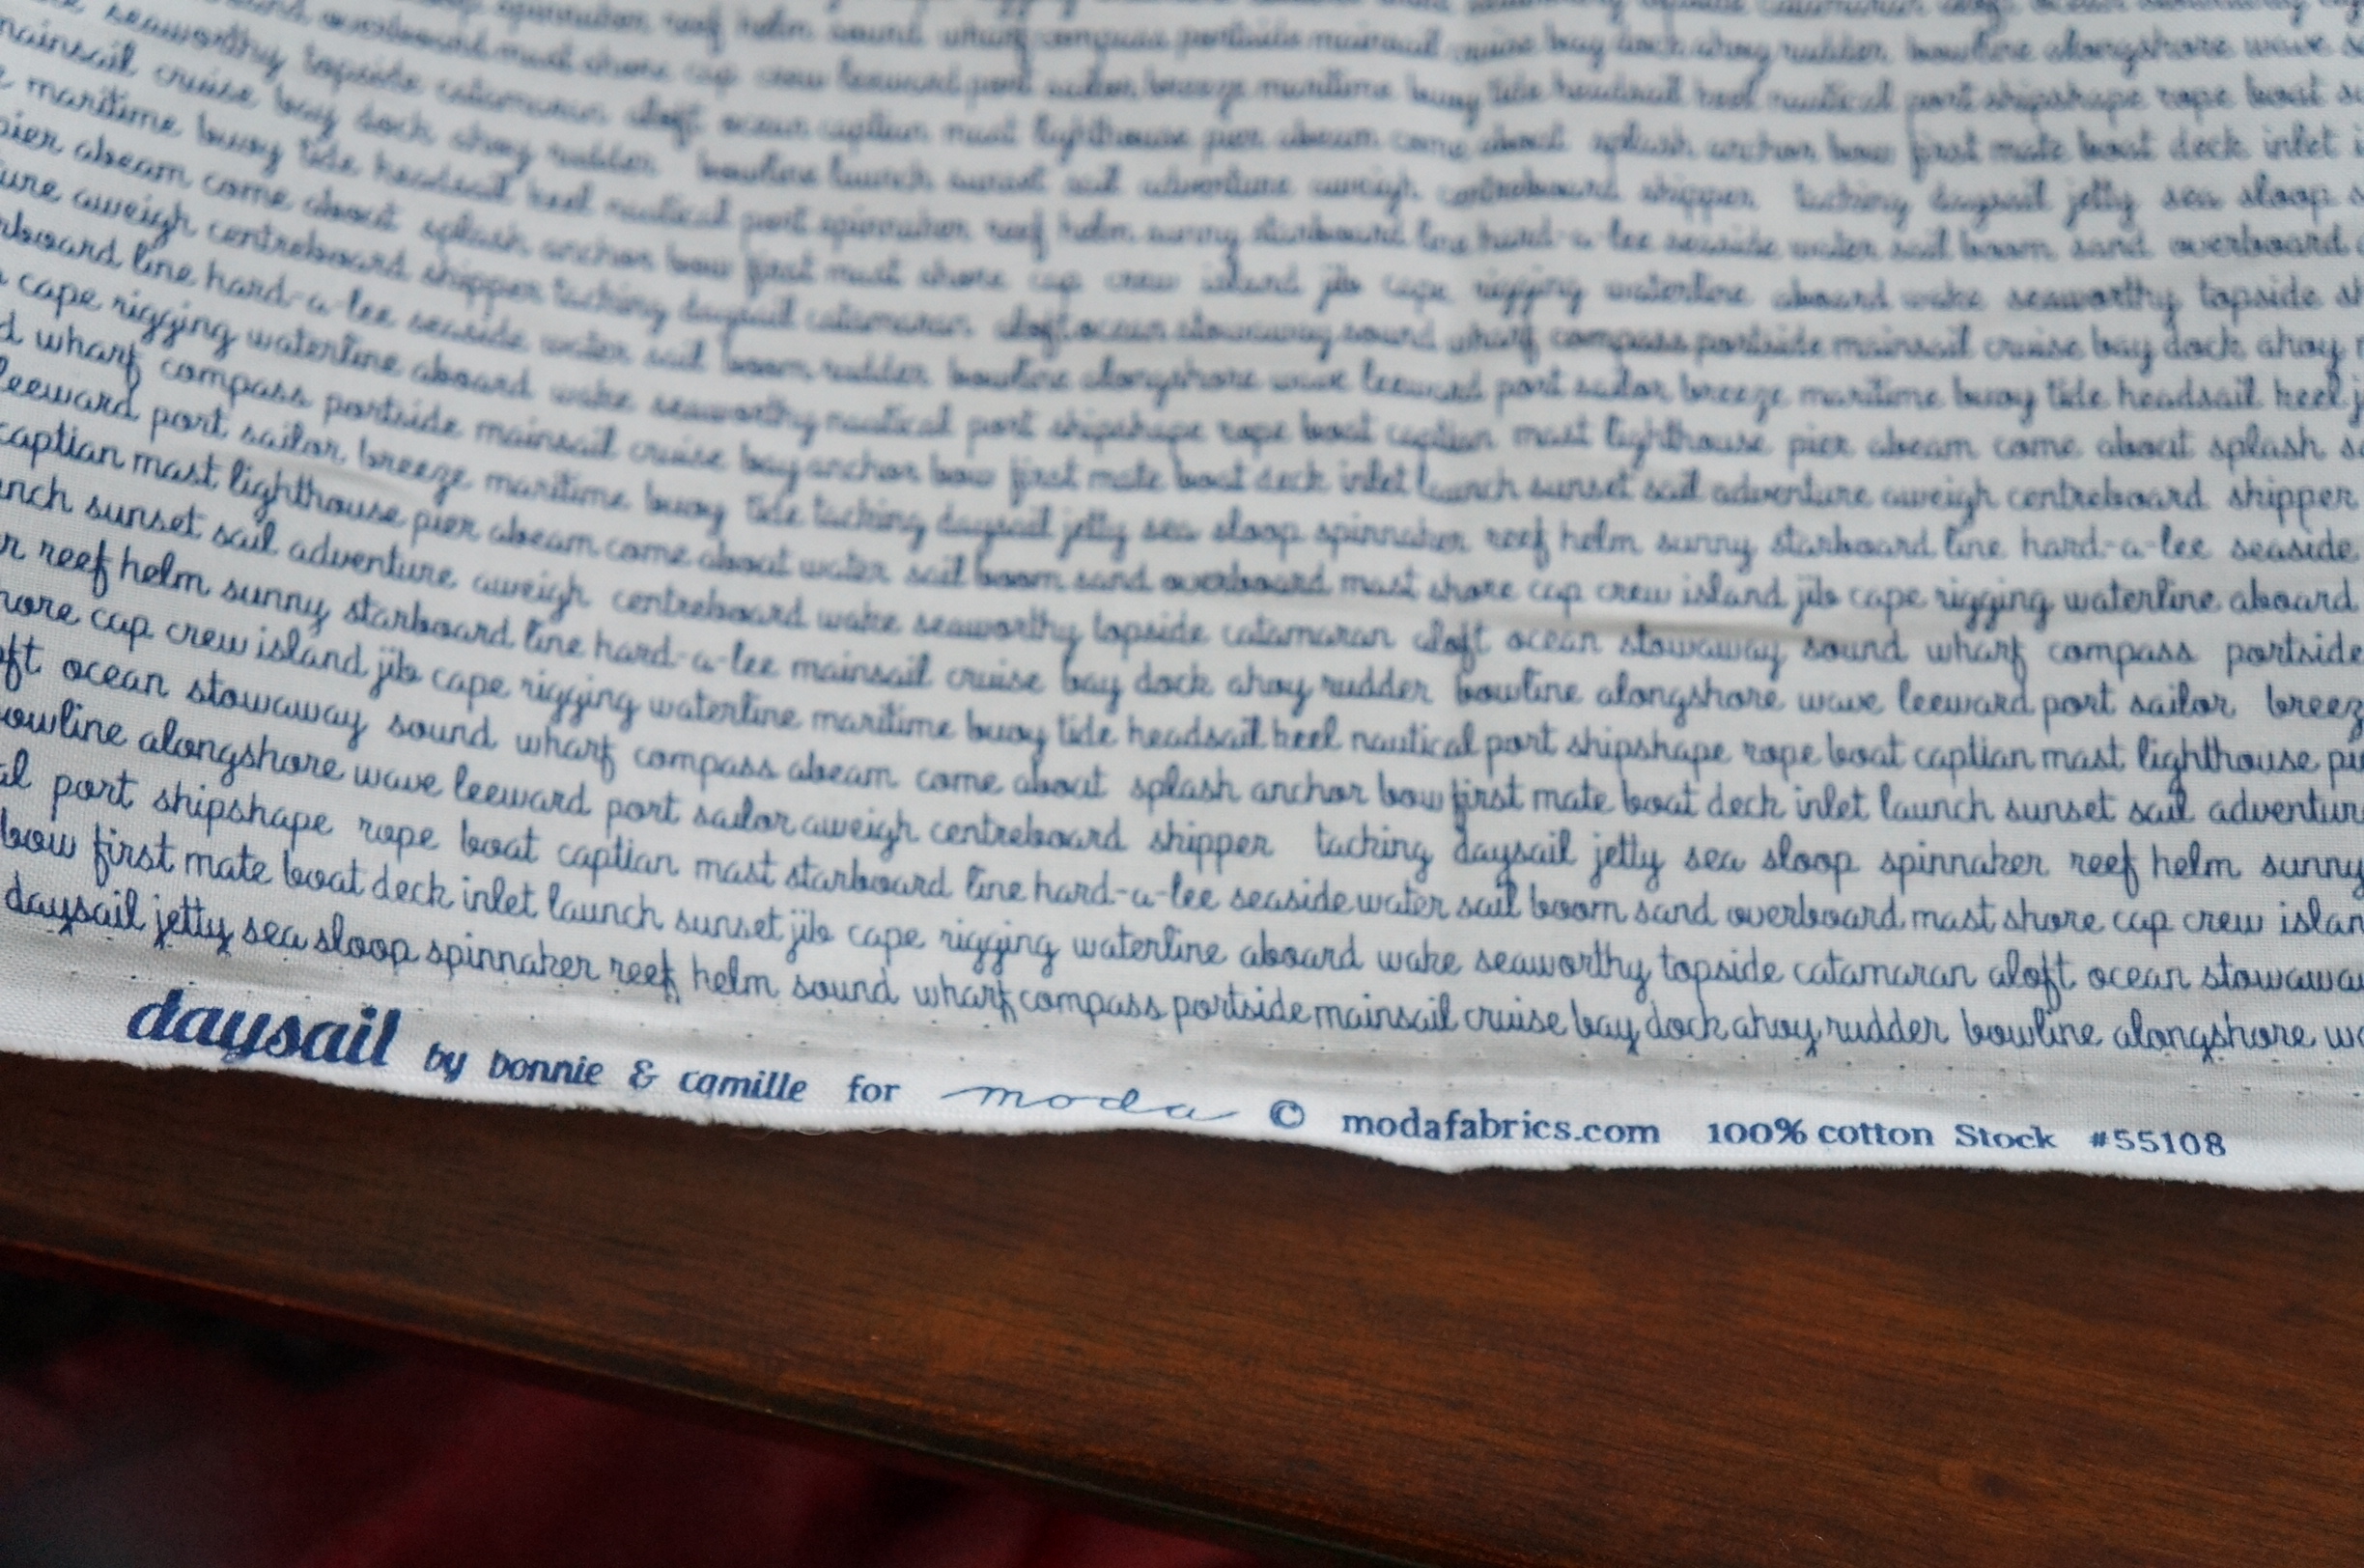 spinnaker reef helm sound wharf compass portside mainsail cruise bay dock ahoy rudder bowline alongshore wave
overboard mast shore cap crew leeward port sailor breeze maritime buoy tide headsail keel nautical port shipshape rope boat
seaworthy topside catamaran aloft ocean captian mast lighthouse pier abeam come about splash anchor bow first mate boat deck inlet
mainsail cruise bay dock ahoy rudder bowline launch sunset sail adventure aweigh centreboard shipper tacking daysail jetty sea sloop
maritime buoy tide headsail keel nautical port spinnaker reef helm sunny starboard line hard-a-lee seaside water sail boom sand overboard
pier abeam come about splash anchor bow first mast shore cap crew island jib cape rigging waterline aboard wake seaworthy topside sh
ure aweigh centreboard shipper tacking daysail catamaran aloft ocean stowaway sound wharf compass portside mainsail cruise bay dock ahoy
rboard line hard-a-lee seaside water sail boom rudder bowline alongshore wave leeward port sailor breeze maritime buoy tide headsail keel
cape rigging waterline aboard wake seaworthy nautical port shipshape rope boat captian mast lighthouse pier abeam come about splash
d wharf compass portside mainsail cruise bay anchor bow first mate boat deck inlet launch sunset sail adventure aweigh centreboard shipper
leeward port sailor breeze maritime buoy tide tacking daysail jetty sea sloop spinnaker reef helm sunny starboard line hard-a-lee seaside
captian mast lighthouse pier abeam come about water sail boom sand overboard mast shore cap crew island jib cape rigging waterline aboard
nch sunset sail adventure aweigh centreboard wake seaworthy topside catamaran aloft ocean stowaway sound wharf compass portside
r reef helm sunny starboard line hard-a-lee mainsail cruise bay dock ahoy rudder bowline alongshore wave leeward port sailor breez
hore cap crew island jib cape rigging waterline maritime buoy tide headsail keel nautical port shipshape rope boat captian mast lighthouse pi
ft ocean stowaway sound wharf compass abeam come about splash anchor bow first mate boat deck inlet launch sunset sail adventur
owline alongshore wave leeward port sailor aweigh centreboard shipper tacking daysail jetty sea sloop spinnaker reef helm sunny
al port shipshape rope boat captian mast starboard line hard-a-lee seaside water sail boom sand overboard mast shore cap crew islan
bow first mate boat deck inlet launch sunset jib cape rigging waterline aboard wake seaworthy topside catamaran aloft ocean stowawa
daysail jetty sea sloop spinnaker reef helm sound wharf compass portside mainsail cruise bay dock ahoy rudder bowline alongshore wa
daysail by bonnie & camille for moda © modafabrics.com 100% cotton Stock #55108